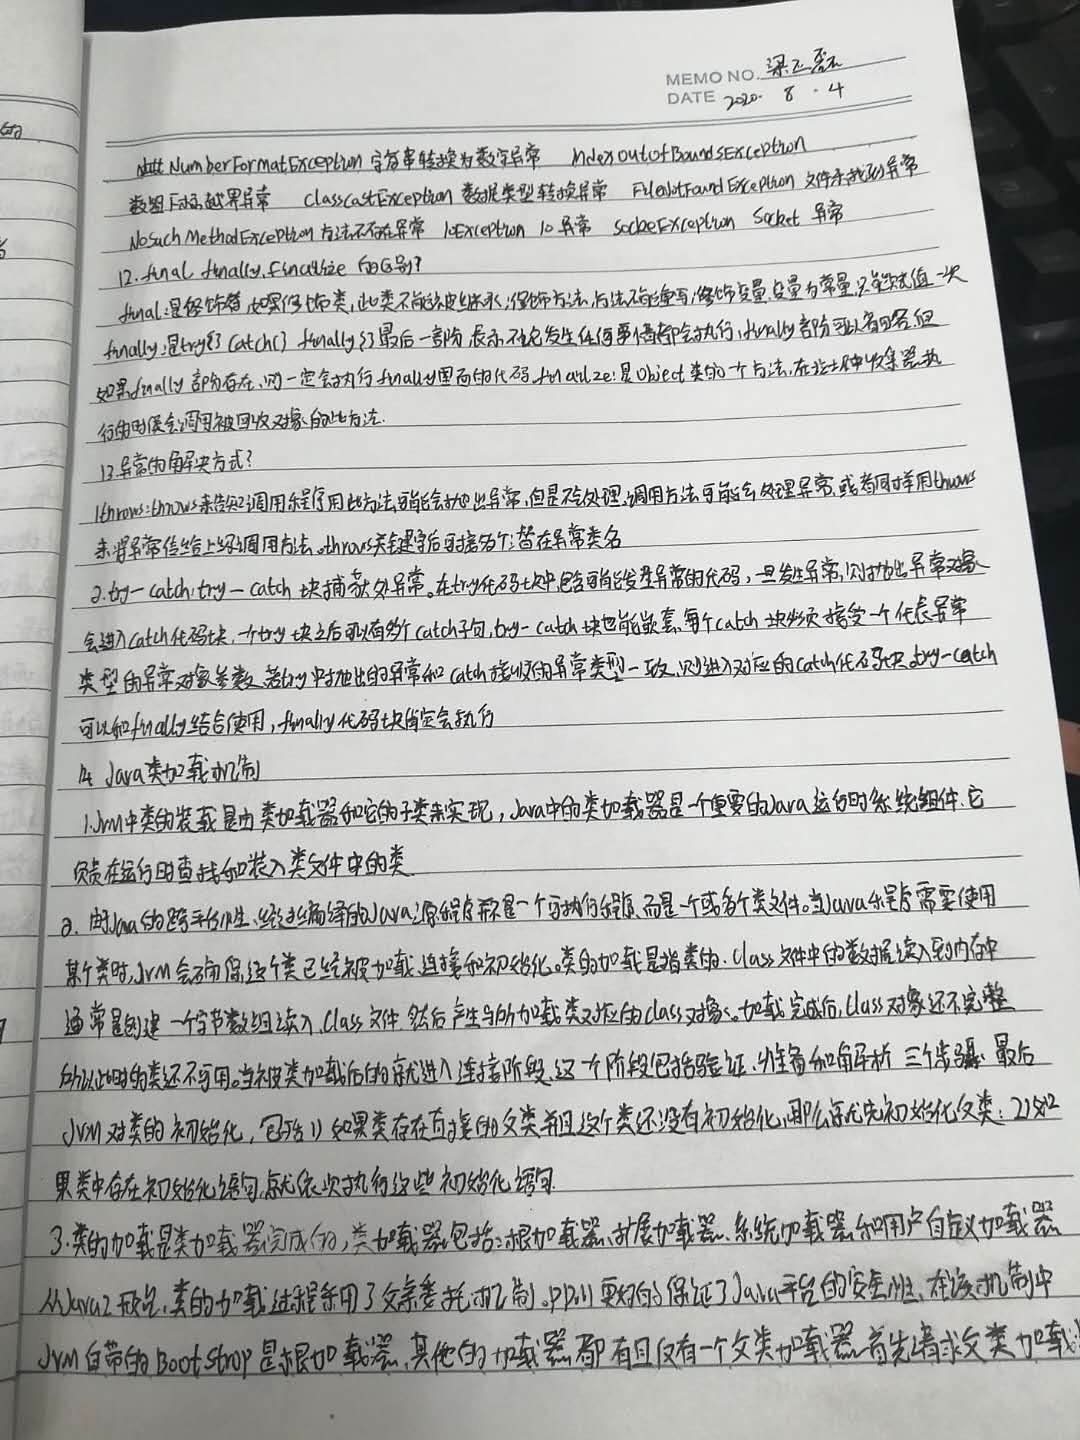 MEMO NO. 梁正
DATE 2020. 8. 4
NumberFormatException 字符串转换为数字异常 IndexOutOfBoundsException
数组下标越界异常 ClassCastException 数据类型转换异常 FileNotFoundException 文件未找到异常
NoSuchMethodException 方法不存在异常 IOException IO异常 SocketException Socket 异常
12.final finally.Finalize 的区别?
final:是修饰符 如果修饰类,此类不能被继承;修饰方法,方法不能重写;修饰变量,变量为常量,只能赋值一次
finally:是try{} catch{} finally{}最后一部分 表示不论发生任何事情都会执行,finally部份可以省略,但
如果finally部份存在,则一定会执行finally里面的代码.finalize:是Object类的一个方法,在垃圾收集器执
行的时候会调用被回收对象的此方法.
13.异常的解决方式?
1throws:throws来告知调用程序用此方法可能会抛出异常,但是不会处理,调用方法可能会处理异常,或者同样用throws
来将异常传给上级调用方法。throws关键字后可接多个;潜在异常类名
2.try-catch:try-catch 块捕获处异常。在try代码块中包含可能发生异常的代码,一旦发生异常,则抛出异常对象
会进入catch代码块,一个try块之后可以有多个catch子句,try-catch块也能嵌套,每个catch块必须接受一个代表异常
类型的异常对象参数,若try中抛出的异常和catch接收的异常类型一致,则进入对应的catch代码块.try-catch
可以和finally结合使用,finally代码块肯定会执行
14 Java类加载机制
1.Jvm中类的装载是由类加载器和它的子类来实现,Java中的类加载器是一个重要的Java运行时系统组件.它
负责在运行时查找和装入类文件中的类
2.由Java的跨平台性、经过编译的Java源程序不是一个可执行程序,而是一个或多个类文件。当Java程序需要使用
某个类时,JVM会确保这个类已经被加载.连接和初始化。类的加载是指类的.Class文件中的数据读入到内存中
通常是创建一个字节数组读入.Class文件 然后产生与所加载类对应的class对象。加载完成后,Class对象还不完整
所以此时的类还不可用。当被类加载后的就进入连接阶段,这个阶段包括验证.准备和解析 三个步骤.最后
JVM对类的初始化,包括1)如果类存在直接的父类并且这个类还没有初始化,那么就先初始化父类:2)如
果类中存在初始化语句,就依次执行这些初始化语句
3.类的加载是类加载器完成的,类加载器包括:根加载器、扩展加载器、系统加载器和用户自定义加载器
从Java2开始,类的加载过程采用了父亲委托机制.PDM更好的保证了Java平台的安全性,在该机制中
JVM自带的BootStrop是根加载器,其他的加载器都有且仅有一个父类加载器.首先请求父类加载